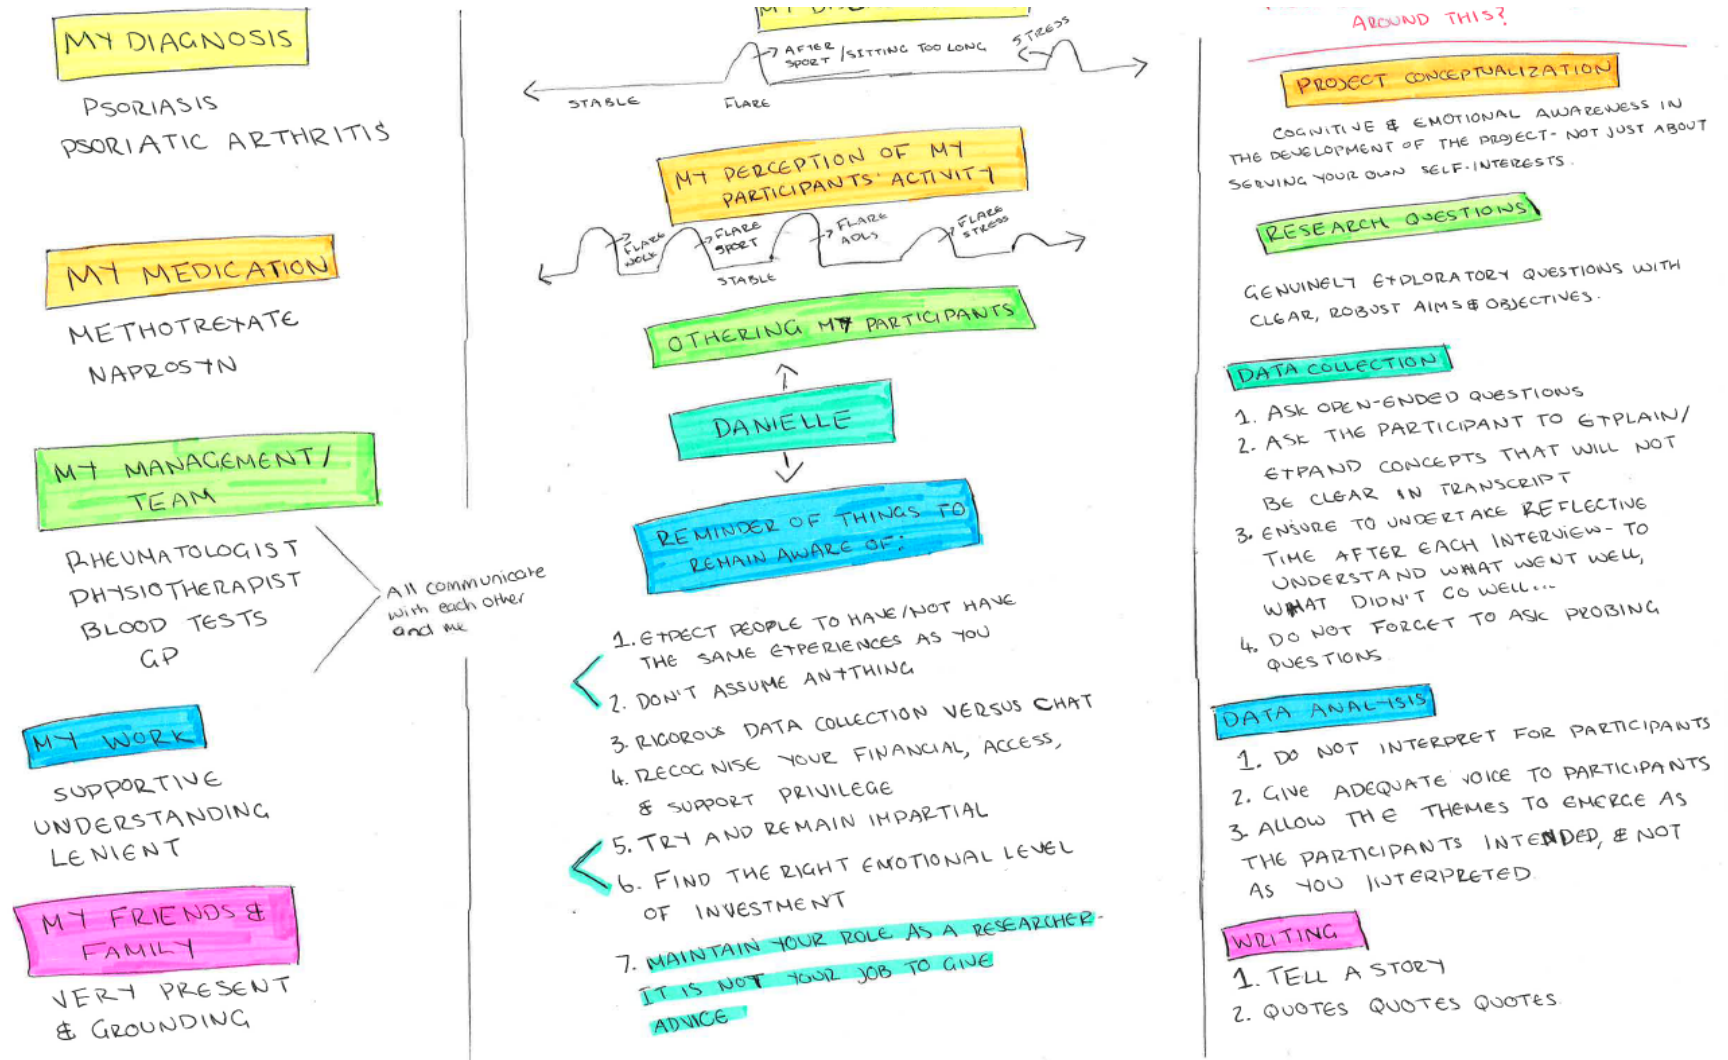 MY DIAGNOSIS
PSORIASIS
PSORIATIC ARTHRITIS
MY MEDICATION
METHOTREXATE
NAPROSYN
MY MANAGEMENT/
TEAM
RHEUMATOLOGIST
PHYSIOTHERAPIST
BLOOD TESTS
GP
All communicate
with each other
and me
MY WORK
SUPPORTIVE
UNDERSTANDING
LENIENT
MY FRIENDS &
FAMILY
VERY PRESENT
& GROUNDING
MY
AFTER
SPORT / SITTING TOO LONG
STRESS
STABLE
FLARE
MY PERCEPTION OF MY
PARTICIPANTS' ACTIVITY
FLARE
WORK
FLARE
SPORT
FLARE
ADLS
FLARE
STRESS
STABLE
OTHERING MY PARTICIPANTS
DANIELLE
REMINDER OF THINGS TO
REMAIN AWARE OF:
1. EXPECT PEOPLE TO HAVE/NOT HAVE
THE SAME EXPERIENCES AS YOU
2. DON'T ASSUME ANYTHING
3. RIGOROUS DATA COLLECTION VERSUS CHAT
4. RECOGNISE YOUR FINANCIAL, ACCESS,
& SUPPORT PRIVILEGE
5. TRY AND REMAIN IMPARTIAL
6. FIND THE RIGHT EMOTIONAL LEVEL
OF INVESTMENT
7. MAINTAIN YOUR ROLE AS A RESEARCHER-
IT IS NOT YOUR JOB TO GIVE
ADVICE
AROUND THIS?
PROJECT CONCEPTUALIZATION
COGNITIVE & EMOTIONAL AWARENESS IN
THE DEVELOPMENT OF THE PROJECT- NOT JUST ABOUT
SERVING YOUR OWN SELF-INTERESTS.
RESEARCH QUESTIONS
GENUINELY EXPLORATORY QUESTIONS WITH
CLEAR, ROBUST AIMS & OBJECTIVES.
DATA COLLECTION
1. ASK OPEN-ENDED QUESTIONS
2. ASK THE PARTICIPANT TO EXPLAIN/
EXPAND CONCEPTS THAT WILL NOT
BE CLEAR IN TRANSCRIPT
3. ENSURE TO UNDERTAKE REFLECTIVE
TIME AFTER EACH INTERVIEW- TO
UNDERSTAND WHAT WENT WELL,
WHAT DIDN'T GO WELL...
4. DO NOT FORGET TO ASK PROBING
QUESTIONS.
DATA ANALYSIS
1. DO NOT INTERPRET FOR PARTICIPANTS
2. GIVE ADEQUATE VOICE TO PARTICIPANTS
3. ALLOW THE THEMES TO EMERGE AS
THE PARTICIPANTS INTENDED, & NOT
AS YOU INTERPRETED.
WRITING
1. TELL A STORY
2. QUOTES QUOTES QUOTES.